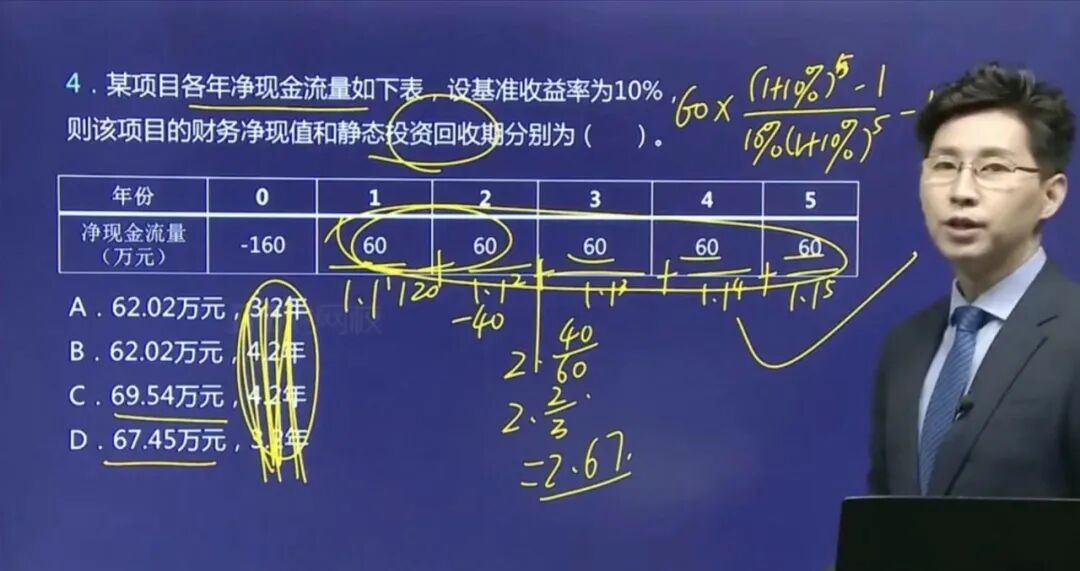 4．某项目各年净现金流量如下表，设基准收益率为10%，
则该项目的财务净现值和静态投资回收期分别为（　　）。
60×((1+10%)^5-1)/(10%(1+10%)^5)-
年份 0 1 2 3 4 5
净现金流量
（万元） -160 60 60 60 60 60
1.1^1 120 1.1^2 1.1^3 1.1^4 1.1^5
-40
A．62.02万元，3.2年
B．62.02万元，4.2年
C．69.54万元，4.2年
D．67.45万元，3.2年
2.40/60
2.2/3
=2.67.